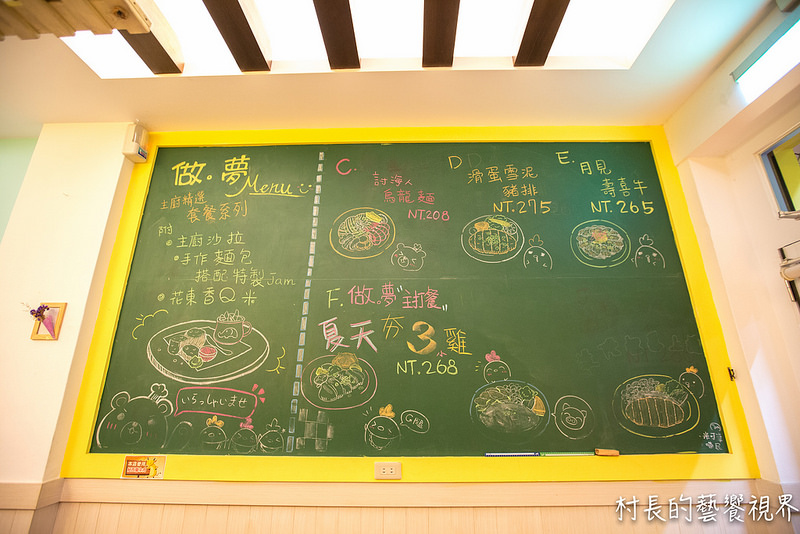 做。夢
Menu
主廚精選
套餐系列
附
主廚沙拉
手作麵包
搭配特製Jam
花東香Q米
いらっしゃいませ
C.
討海人
烏龍麵
NT.208
D
滑蛋雪泥
豬排
NT.275
E.
月見
壽喜牛
NT.265
F. 做。夢"主打餐"
夏天夯3雞
NT.268
村長的藝饗視界